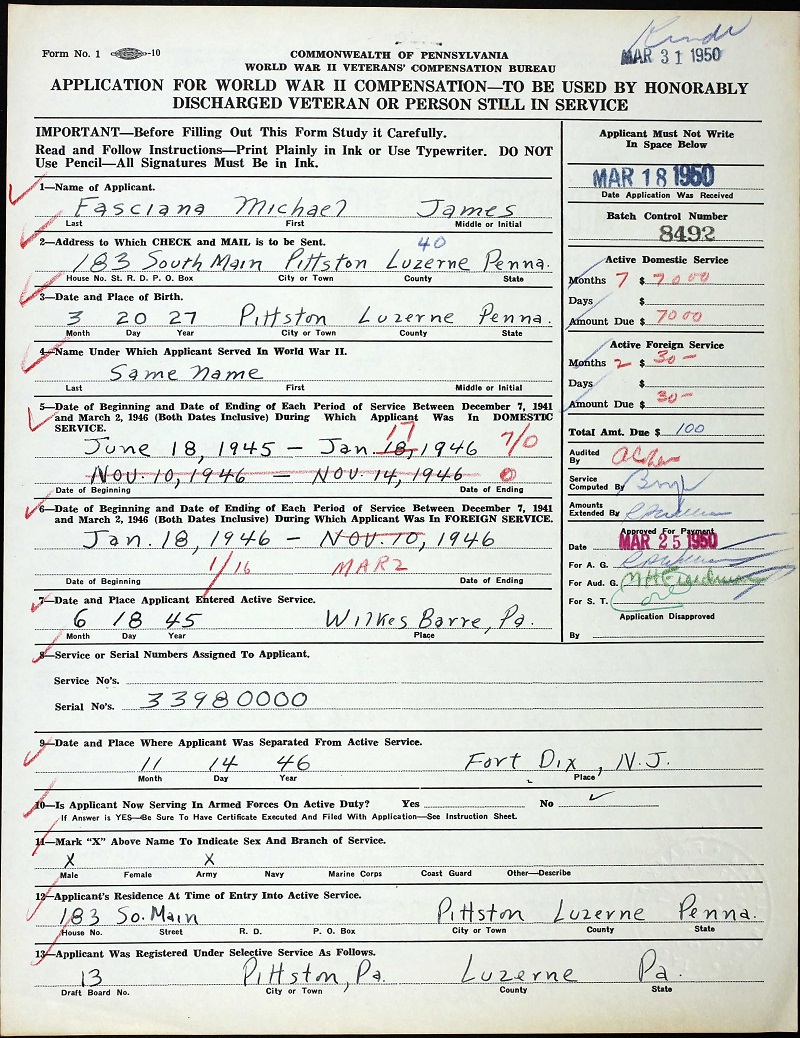 Form No. 1 -10
COMMONWEALTH OF PENNSYLVANIA
WORLD WAR II VETERANS' COMPENSATION BUREAU
MAR 31 1950
APPLICATION FOR WORLD WAR II COMPENSATION—TO BE USED BY HONORABLY
DISCHARGED VETERAN OR PERSON STILL IN SERVICE
IMPORTANT—Before Filling Out This Form Study it Carefully.
Read and Follow Instructions—Print Plainly in Ink or Use Typewriter. DO NOT
Use Pencil—All Signatures Must Be in Ink.
Applicant Must Not Write
In Space Below
MAR 18 1950
Date Application Was Received
Batch Control Number
8492
Active Domestic Service
Months 7 $ 70 00
Days $
Amount Due $ 70 00
Active Foreign Service
Months 2 $ 30 -
Days $
Amount Due $ 30 -
Total Amt. Due $ 100
Audited
By
Service
Computed By
Amounts
Extended By
Approved For Payment
Date MAR 25 1950
For A. G.
For Aud. G.
For S. T.
Application Disapproved
By
1—Name of Applicant.
Fasciana Michael James
Last First Middle or Initial
2—Address to Which CHECK and MAIL is to be Sent.
40
183 South Main Pittston Luzerne Penna.
House No. St. R. D. P. O. Box City or Town County State
3—Date and Place of Birth.
3 20 27 Pittston Luzerne Penna.
Month Day Year City or Town County State
4—Name Under Which Applicant Served In World War II.
Same Name
Last First Middle or Initial
5—Date of Beginning and Date of Ending of Each Period of Service Between December 7, 1941
and March 2, 1946 (Both Dates Inclusive) During Which Applicant Was In DOMESTIC
SERVICE.
17
June 18, 1945 — Jan. 18, 1946 7/0
Nov. 10, 1946 — Nov. 14, 1946 0
Date of Beginning Date of Ending
6—Date of Beginning and Date of Ending of Each Period of Service Between December 7, 1941
and March 2, 1946 (Both Dates Inclusive) During Which Applicant Was In FOREIGN SERVICE.
Jan. 18, 1946 — Nov. 10, 1946
1/16 MAR 2
Date of Beginning Date of Ending
7—Date and Place Applicant Entered Active Service.
6 18 45 Wilkes Barre, Pa.
Month Day Year Place
8—Service or Serial Numbers Assigned To Applicant.
Service No's.
Serial No's. 33980000
9—Date and Place Where Applicant Was Separated From Active Service.
11 14 46 Fort Dix, N.J.
Month Day Year Place
10—Is Applicant Now Serving In Armed Forces On Active Duty? Yes No ✓
If Answer is YES—Be Sure To Have Certificate Executed And Filed With Application—See Instruction Sheet.
11—Mark "X" Above Name To Indicate Sex and Branch of Service.
X X
Male Female Army Navy Marine Corps Coast Guard Other—Describe
12—Applicant's Residence At Time of Entry Into Active Service.
183 So. Main Pittston Luzerne Penna.
House No. Street R. D. P. O. Box City or Town County State
13—Applicant Was Registered Under Selective Service As Follows.
13 Pittston, Pa. Luzerne Pa.
Draft Board No. City or Town County State